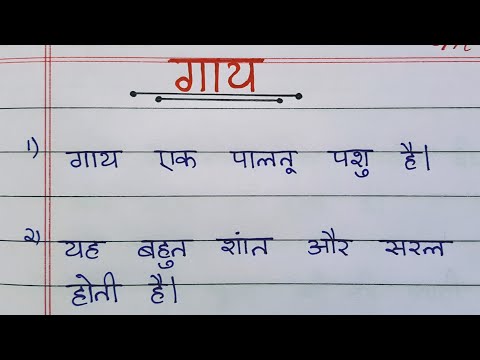 गाय
१) गाय एक पालतू पशु है।
२) यह बहुत शांत और सरल
होती है।